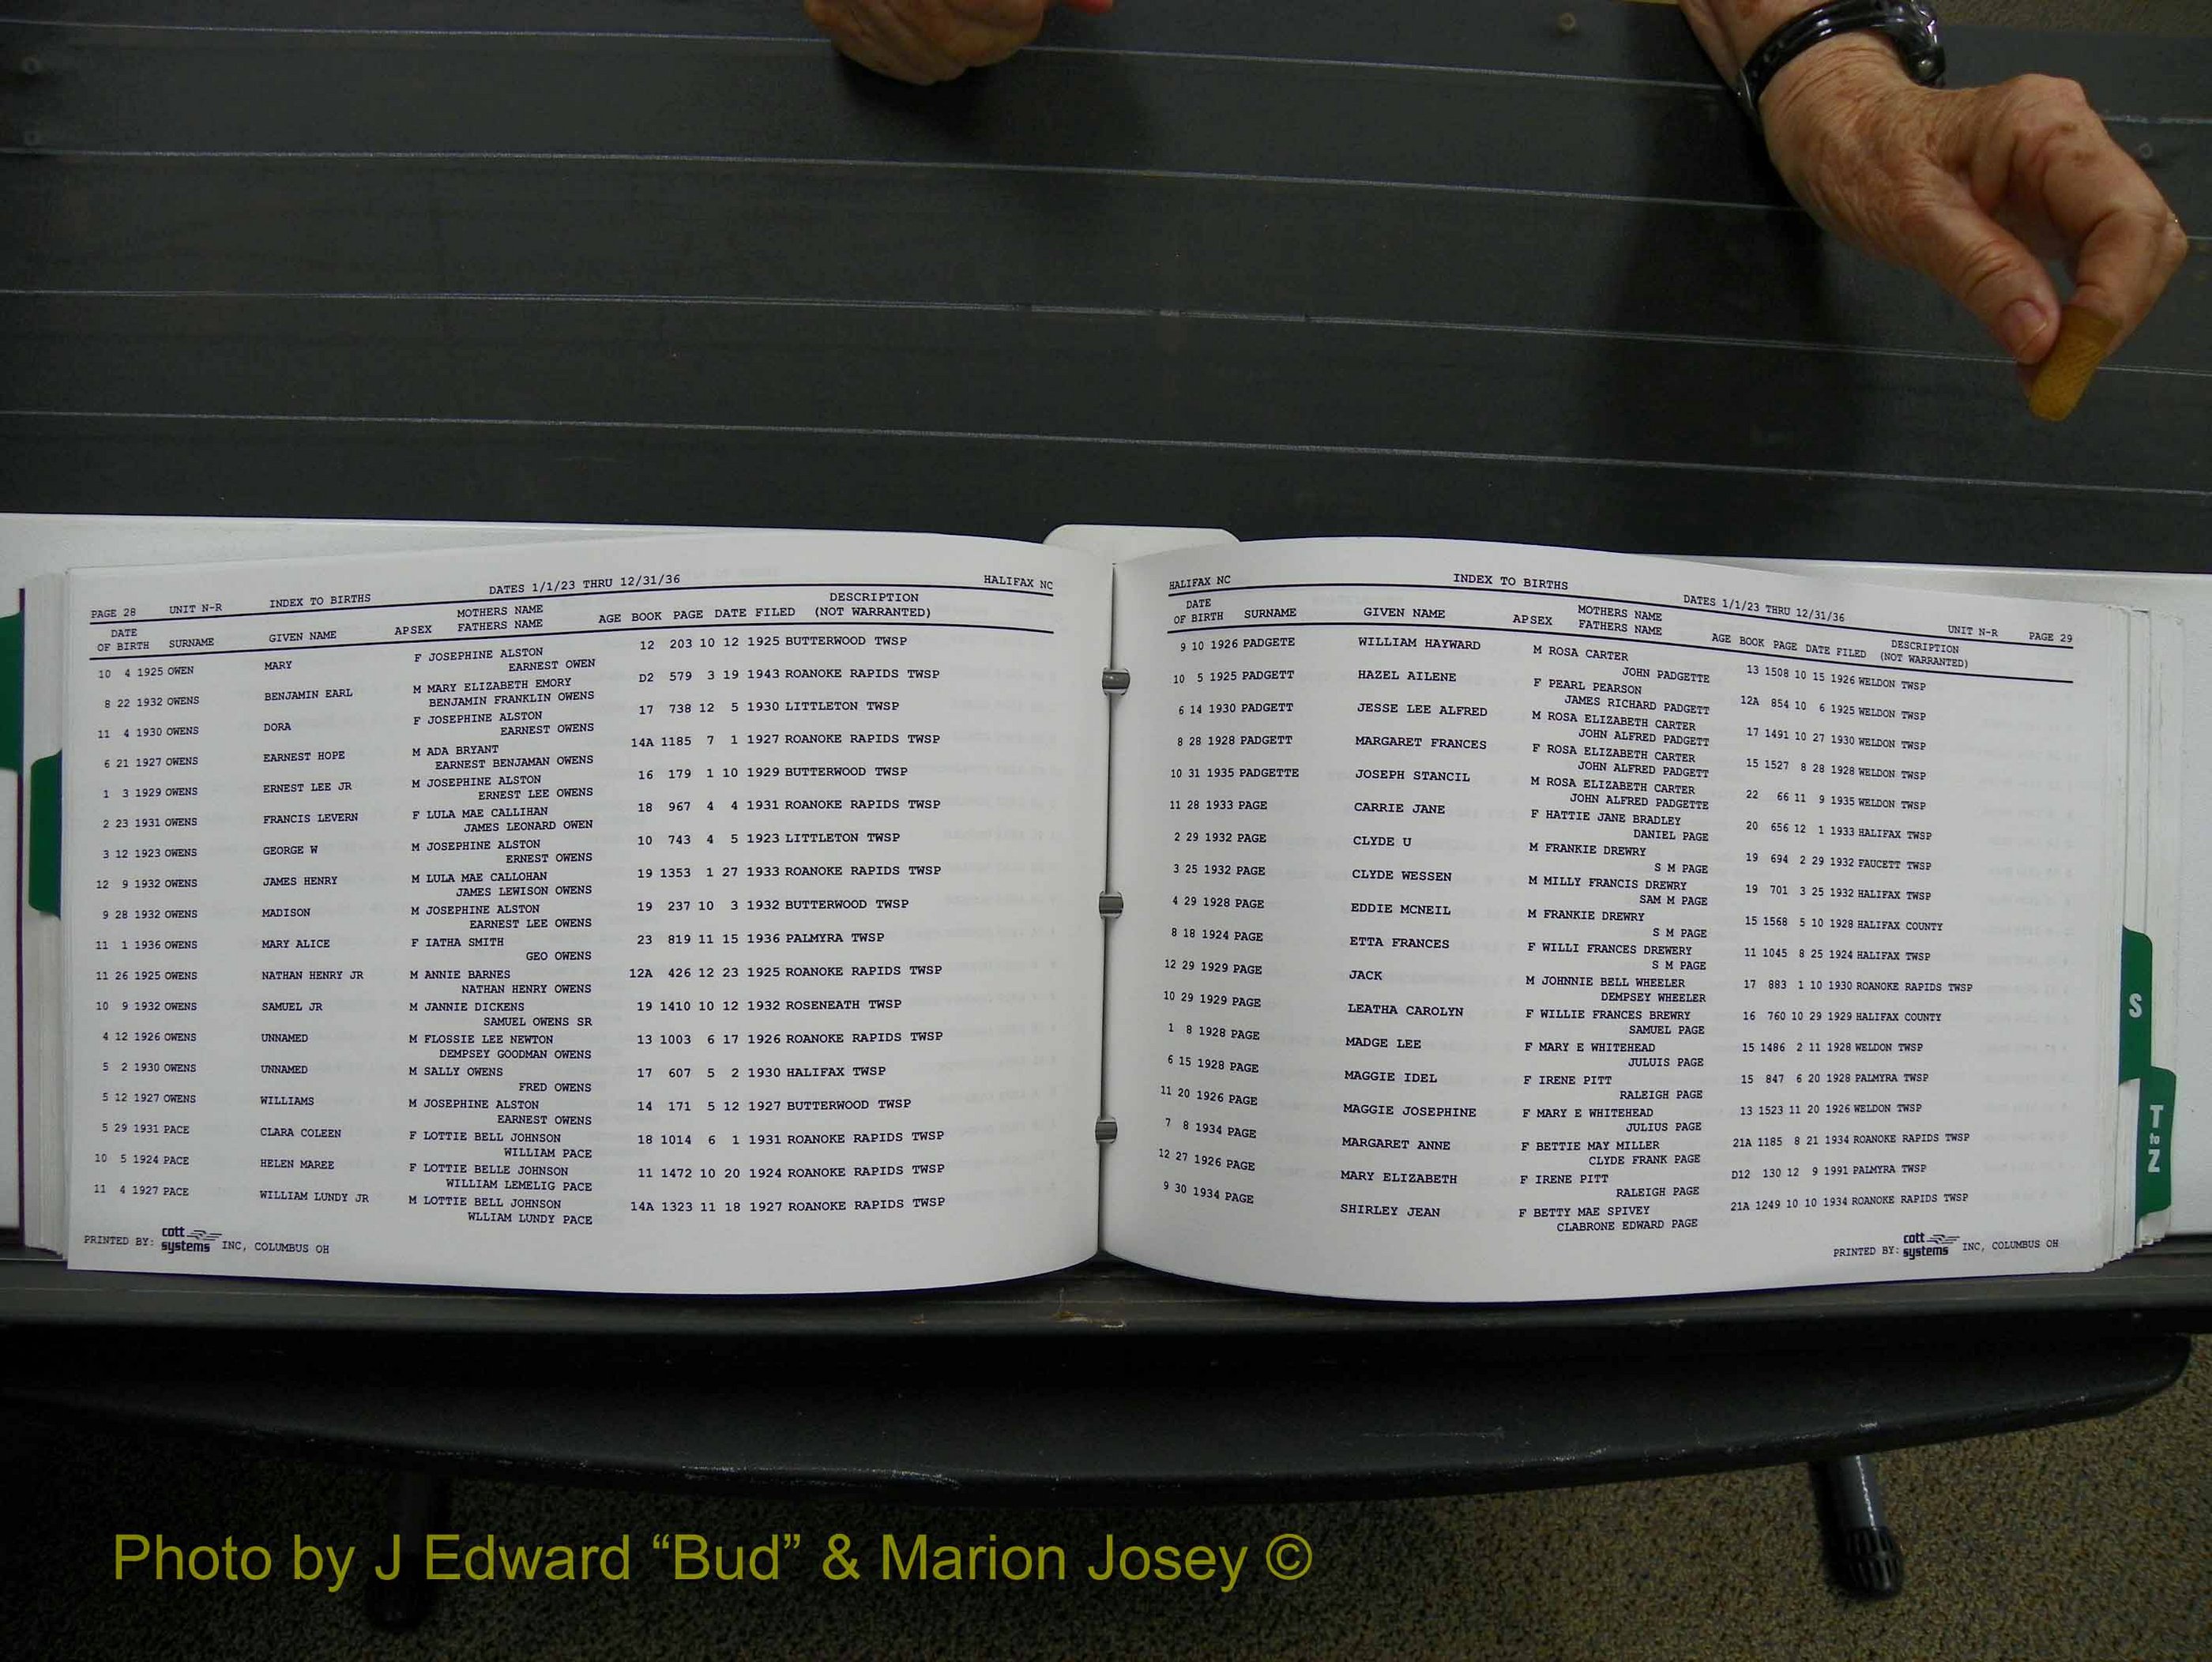 PAGE 28 UNIT N-R INDEX TO BIRTHS DATES 1/1/23 THRU 12/31/36 HALIFAX NC
DATE OF BIRTH SURNAME GIVEN NAME APSEX MOTHERS NAME FATHERS NAME AGE BOOK PAGE DATE FILED DESCRIPTION (NOT WARRANTED)
10 4 1925 OWEN MARY F JOSEPHINE ALSTON 12 203 10 12 1925 BUTTERWOOD TWSP
EARNEST OWEN
8 22 1932 OWENS BENJAMIN EARL M MARY ELIZABETH EMORY D2 579 3 19 1943 ROANOKE RAPIDS TWSP
BENJAMIN FRANKLIN OWENS
11 4 1930 OWENS DORA F JOSEPHINE ALSTON 17 738 12 5 1930 LITTLETON TWSP
EARNEST OWENS
6 21 1927 OWENS EARNEST HOPE M ADA BRYANT 14A 1185 7 1 1927 ROANOKE RAPIDS TWSP
EARNEST BENJAMAN OWENS
1 3 1929 OWENS ERNEST LEE JR M JOSEPHINE ALSTON 16 179 1 10 1929 BUTTERWOOD TWSP
ERNEST LEE OWENS
2 23 1931 OWENS FRANCIS LEVERN F LULA MAE CALLIHAN 18 967 4 4 1931 ROANOKE RAPIDS TWSP
JAMES LEONARD OWEN
3 12 1923 OWENS GEORGE W M JOSEPHINE ALSTON 10 743 4 5 1923 LITTLETON TWSP
ERNEST OWENS
12 9 1932 OWENS JAMES HENRY M LULA MAE CALLOHAN 19 1353 1 27 1933 ROANOKE RAPIDS TWSP
JAMES LEWISON OWENS
9 28 1932 OWENS MADISON M JOSEPHINE ALSTON 19 237 10 3 1932 BUTTERWOOD TWSP
EARNEST LEE OWENS
11 1 1936 OWENS MARY ALICE F IATHA SMITH 23 819 11 15 1936 PALMYRA TWSP
GEO OWENS
11 26 1925 OWENS NATHAN HENRY JR M ANNIE BARNES 12A 426 12 23 1925 ROANOKE RAPIDS TWSP
NATHAN HENRY OWENS
10 9 1932 OWENS SAMUEL JR M JANNIE DICKENS 19 1410 10 12 1932 ROSENEATH TWSP
SAMUEL OWENS SR
4 12 1926 OWENS UNNAMED M FLOSSIE LEE NEWTON 13 1003 6 17 1926 ROANOKE RAPIDS TWSP
DEMPSEY GOODMAN OWENS
5 2 1930 OWENS UNNAMED M SALLY OWENS 17 607 5 2 1930 HALIFAX TWSP
FRED OWENS
5 12 1927 OWENS WILLIAMS M JOSEPHINE ALSTON 14 171 5 12 1927 BUTTERWOOD TWSP
EARNEST OWENS
5 29 1931 PACE CLARA COLEEN F LOTTIE BELL JOHNSON 18 1014 6 1 1931 ROANOKE RAPIDS TWSP
WILLIAM PACE
10 5 1924 PACE HELEN MAREE F LOTTIE BELLE JOHNSON 11 1472 10 20 1924 ROANOKE RAPIDS TWSP
WILLIAM LEMELIG PACE
11 4 1927 PACE WILLIAM LUNDY JR M LOTTIE BELL JOHNSON 14A 1323 11 18 1927 ROANOKE RAPIDS TWSP
WLLIAM LUNDY PACE
PRINTED BY: cott systems INC, COLUMBUS OH
HALIFAX NC INDEX TO BIRTHS DATES 1/1/23 THRU 12/31/36 UNIT N-R PAGE 29
DATE OF BIRTH SURNAME GIVEN NAME APSEX MOTHERS NAME FATHERS NAME AGE BOOK PAGE DATE FILED DESCRIPTION (NOT WARRANTED)
9 10 1926 PADGETE WILLIAM HAYWARD M ROSA CARTER 13 1508 10 15 1926 WELDON TWSP
JOHN PADGETTE
10 5 1925 PADGETT HAZEL AILENE F PEARL PEARSON 12A 854 10 6 1925 WELDON TWSP
JAMES RICHARD PADGETT
6 14 1930 PADGETT JESSE LEE ALFRED M ROSA ELIZABETH CARTER 17 1491 10 27 1930 WELDON TWSP
JOHN ALFRED PADGETT
8 28 1928 PADGETT MARGARET FRANCES F ROSA ELIZABETH CARTER 15 1527 8 28 1928 WELDON TWSP
JOHN ALFRED PADGETT
10 31 1935 PADGETTE JOSEPH STANCIL M ROSA ELIZABETH CARTER 22 66 11 9 1935 WELDON TWSP
JOHN ALFRED PADGETTE
11 28 1933 PAGE CARRIE JANE F HATTIE JANE BRADLEY 20 656 12 1 1933 HALIFAX TWSP
DANIEL PAGE
2 29 1932 PAGE CLYDE U M FRANKIE DREWRY 19 694 2 29 1932 FAUCETT TWSP
S M PAGE
3 25 1932 PAGE CLYDE WESSEN M MILLY FRANCIS DREWRY 19 701 3 25 1932 HALIFAX TWSP
SAM M PAGE
4 29 1928 PAGE EDDIE MCNEIL M FRANKIE DREWRY 15 1568 5 10 1928 HALIFAX COUNTY
S M PAGE
8 18 1924 PAGE ETTA FRANCES F WILLI FRANCES DREWERY 11 1045 8 25 1924 HALIFAX TWSP
S M PAGE
12 29 1929 PAGE JACK M JOHNNIE BELL WHEELER 17 883 1 10 1930 ROANOKE RAPIDS TWSP
DEMPSEY WHEELER
10 29 1929 PAGE LEATHA CAROLYN F WILLIE FRANCES BREWRY 16 760 10 29 1929 HALIFAX COUNTY
SAMUEL PAGE
1 8 1928 PAGE MADGE LEE F MARY E WHITEHEAD 15 1486 2 11 1928 WELDON TWSP
JULUIS PAGE
6 15 1928 PAGE MAGGIE IDEL F IRENE PITT 15 847 6 20 1928 PALMYRA TWSP
RALEIGH PAGE
11 20 1926 PAGE MAGGIE JOSEPHINE F MARY E WHITEHEAD 13 1523 11 20 1926 WELDON TWSP
JULIUS PAGE
7 8 1934 PAGE MARGARET ANNE F BETTIE MAY MILLER 21A 1185 8 21 1934 ROANOKE RAPIDS TWSP
CLYDE FRANK PAGE
12 27 1926 PAGE MARY ELIZABETH F IRENE PITT D12 130 12 9 1991 PALMYRA TWSP
RALEIGH PAGE
9 30 1934 PAGE SHIRLEY JEAN F BETTY MAE SPIVEY 21A 1249 10 10 1934 ROANOKE RAPIDS TWSP
CLABRONE EDWARD PAGE
PRINTED BY: cott systems INC, COLUMBUS OH
S
T to Z
Photo by J Edward “Bud” & Marion Josey ©